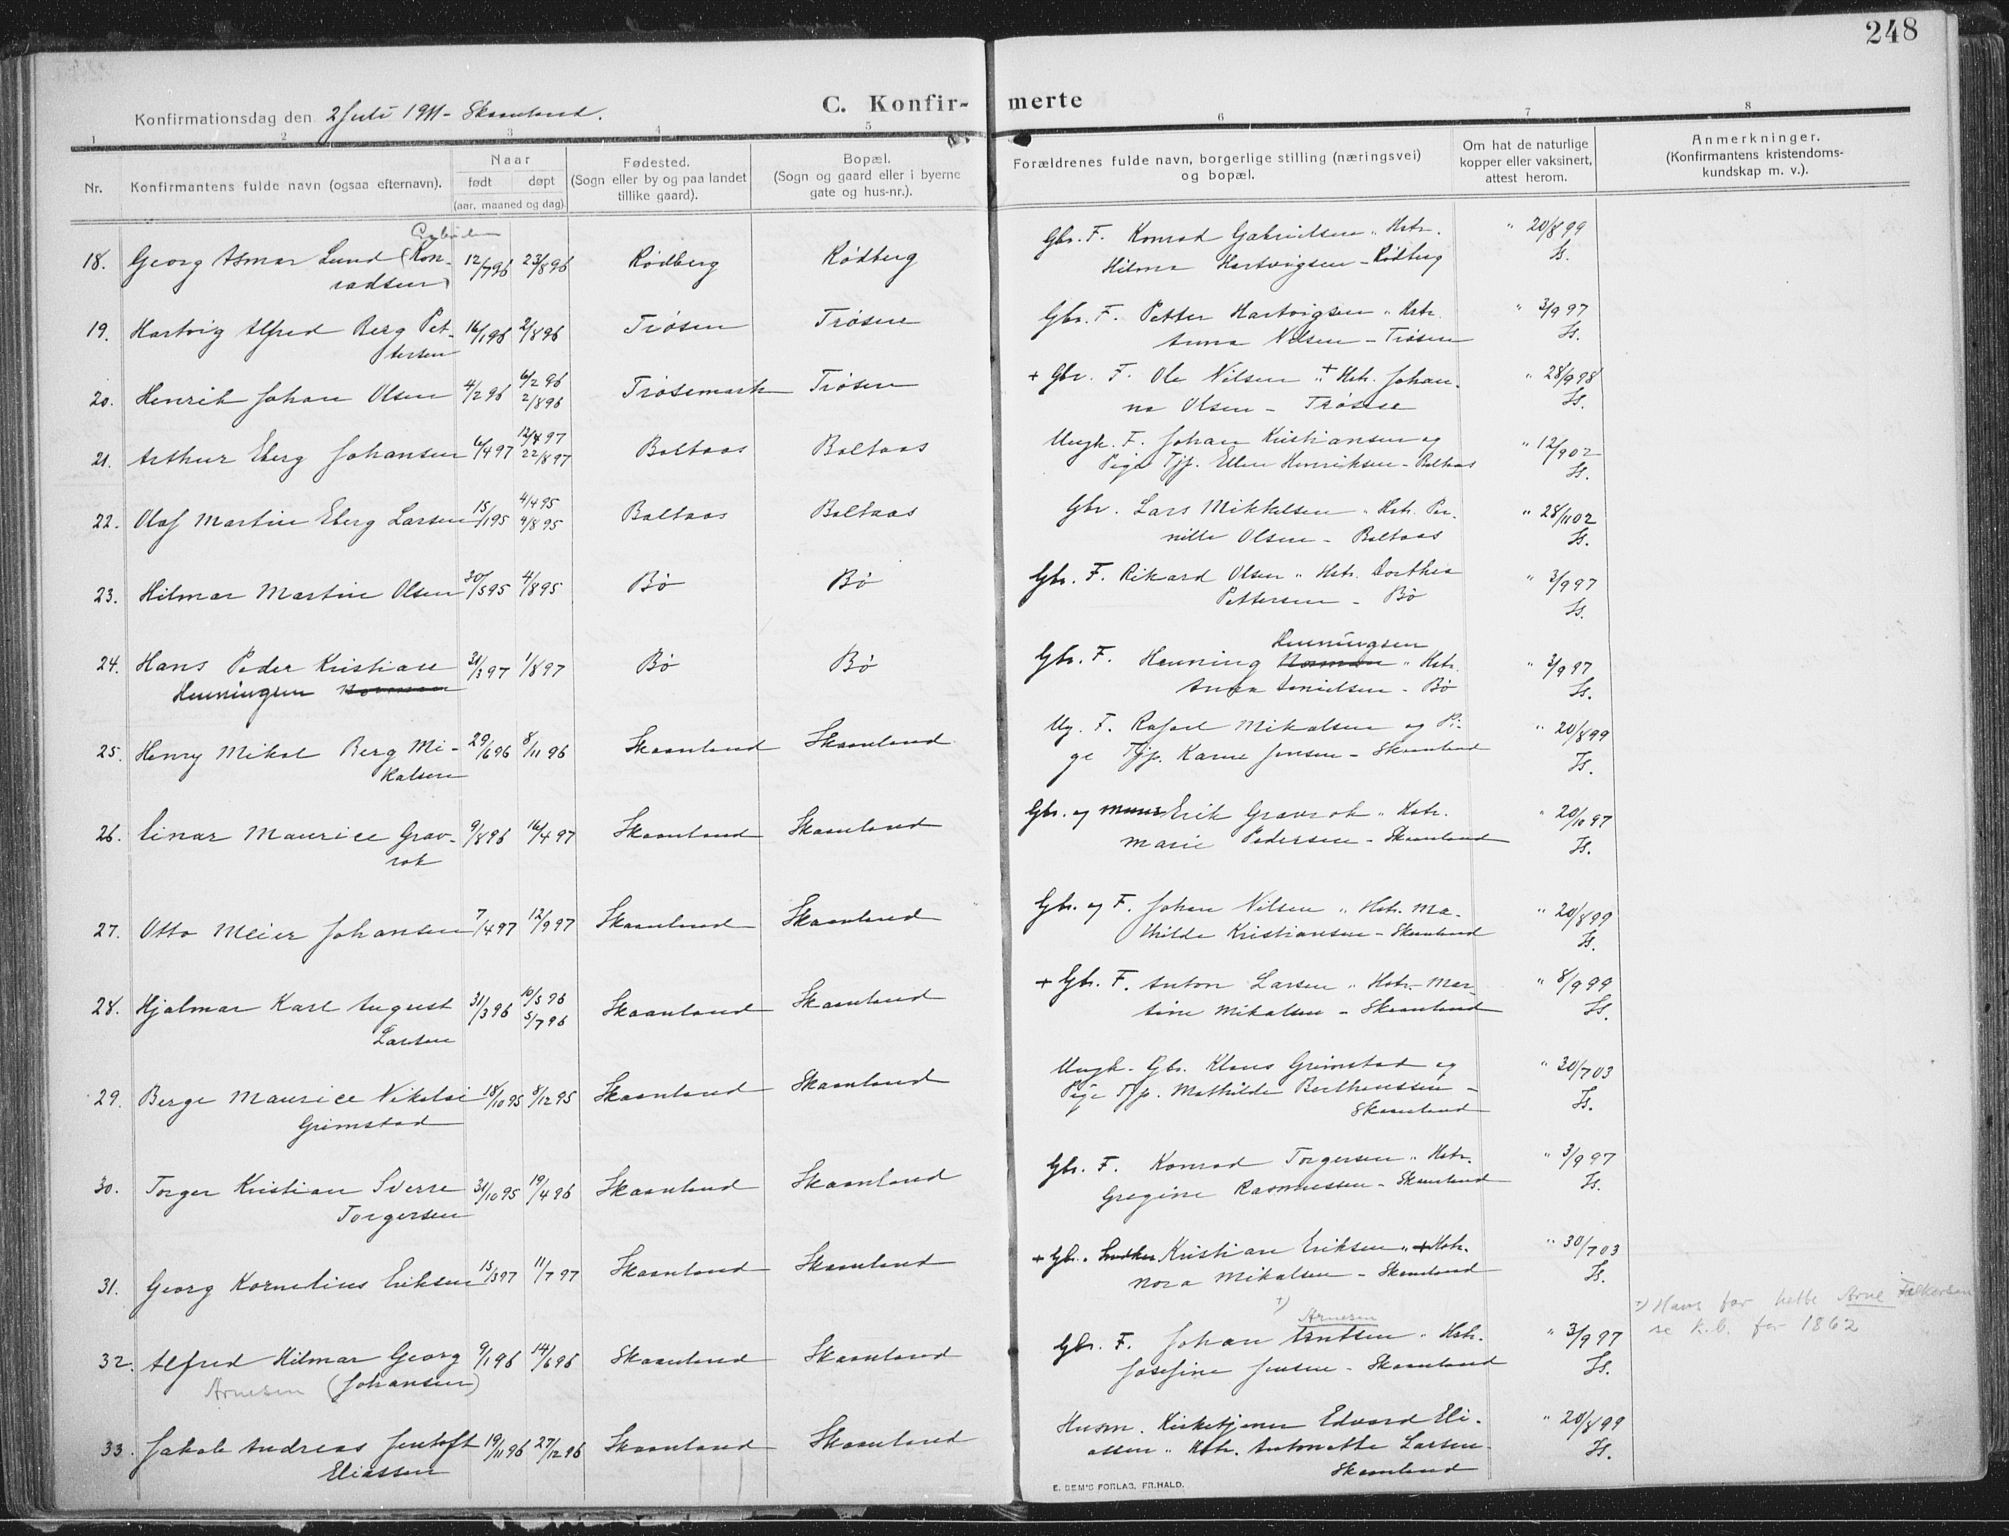 248
Konfirmationsdag den 2 Juli 1911 - Skaanland.
C. Konfir- merte
1 2 3 4 5 6 7 8
Nr.
Konfirmantens fulde navn (ogsaa efternavn).
Naar
født døpt
(aar, maaned og dag).
Fødested.
(Sogn eller by og paa landet
tillike gaard).
Bopæl.
(Sogn og gaard eller i byerne
gate og hus-nr.).
Forældrenes fulde navn, borgerlige stilling (næringsvei)
og bopæl.
Om hat de naturlige
kopper eller vaksinert,
attest herom.
Anmerkninger.
(Konfirmantens kristendoms-
kundskap m. v.).
18. Georg Asmar Lund (Kon- 12/7 96 23/8 96 Rødberg Rødberg Gbr. F. Konrad Gabrielsen " Hstr. " 20/8 99
radsen) Hilma Hartvigsen - Rødberg Is.
19. Hartvig Alfred Berg Pet- 16/1 96 2/8 96 Trøsen Trøsen Gbr. F. Petter Hartvigsen " Hstr. " 3/9 97
tersen Anna Nilsen - Trøsen Is.
20. Henrik Johan Olsen 4/2 96 6/2 96 2/8 96 Trøsemark Trøsen + Gbr. F. Ole Nilsen " + Hstr. Johan- " 28/9 98
na Olsen - Trøsen Is.
21. Arthur Eberg Johansen 6/4 97 12/4 97 22/8 97 Boltaas Boltaas Ungk. F. Johan Kristiansen og " 12/9 02
Pige Tjp. Ellen Henriksen - Boltaas Is.
22. Olaf Martin Eberg Larsen 15/1 95 4/4 95 4/8 95 Boltaas Boltaas Gbr. Lars Mikkelsen " Hstr. Per- " 28/11 02
nille Olsen - Boltaas Is.
23. Hilmar Martin Olsen 30/5 95 4/8 95 Bø Bø Gbr. F. Rikard Olsen " Hstr. Dorthea " 3/9 97
Pettersen - Bø Is.
Henningsen
24. Hans Peder Kristian 31/3 97 1/8 97 Bø Bø Gbr. F. Henning Norman " Hstr. " 3/9 97
Henningsen Norman Anna Danielsen - Bø Is.
25. Henry Mikal Berg Mi- 29/6 96 8/11 96 Skaanland Skaanland Ug. F. Rafael Mikalsen og Pi- " 20/8 99
kalsen ge Tjp. Karne Jensen - Skaanland Is.
26. Einar Maurice Grav- 9/8 96 16/4 97 Skaanland Skaanland Gbr. og Murer Erik Gravrok " Hstr. " 20/10 97
rok Marie Pedersen - Skaanland Is.
27. Otto Meier Johansen 7/4 97 12/9 97 Skaanland Skaanland Gbr. og F. Johan Nilsen " Hstr. Ma- " 20/8 99
thilde Kristiansen - Skaanland Is.
28. Hjalmar Karl August 31/3 96 10/5 96 5/7 96 Skaanland Skaanland + Gbr. F. Anton Larsen " Hstr. Mar- " 8/9 99
Larsen tine Mikalsen - Skaanland Is.
29. Berge Maurice Nikolai 18/10 95 8/12 95 Skaanland Skaanland Ungk. Gbr. Klaus Grimstad og " 30/7 03
Grimstad Pige Tjp. Mathilde Bertheussen - Is.
Skaanland
30. Torger Kristian Sverre 31/10 95 19/4 96 Skaanland Skaanland Gbr. F. Konrad Torgersen " Hstr. " 3/9 97
Torgersen Gregine Rasmussen - Skaanland Is.
31. Georg Kornelius Eriksen 15/3 97 11/7 97 Skaanland Skaanland + Gbr. Snedker Kristian Eriksen " + Hstr. " 30/7 03
Nora Mikalsen - Skaanland Is.
+) Arnesen +) Hans far hette Arne Falkersen
se k.b. for 1862
32. Alfred Hilmar Georg 9/1 96 14/6 96 Skaanland Skaanland Gbr. F. Johan Arntsen " Hstr. " 3/9 97
Arnesen (Johansen) Josefine Jensen - Skaanland Is.
33. Jakob Andreas Jentoft 19/11 96 27/12 96 Skaanland Skaanland Husm. Kirketjener Edvard Eli- " 20/8 99
Eliassen assen " Hstr. Antonette Larsen - Is.
Skaanland
E. SEM'S FORLAG, FR.HALD.